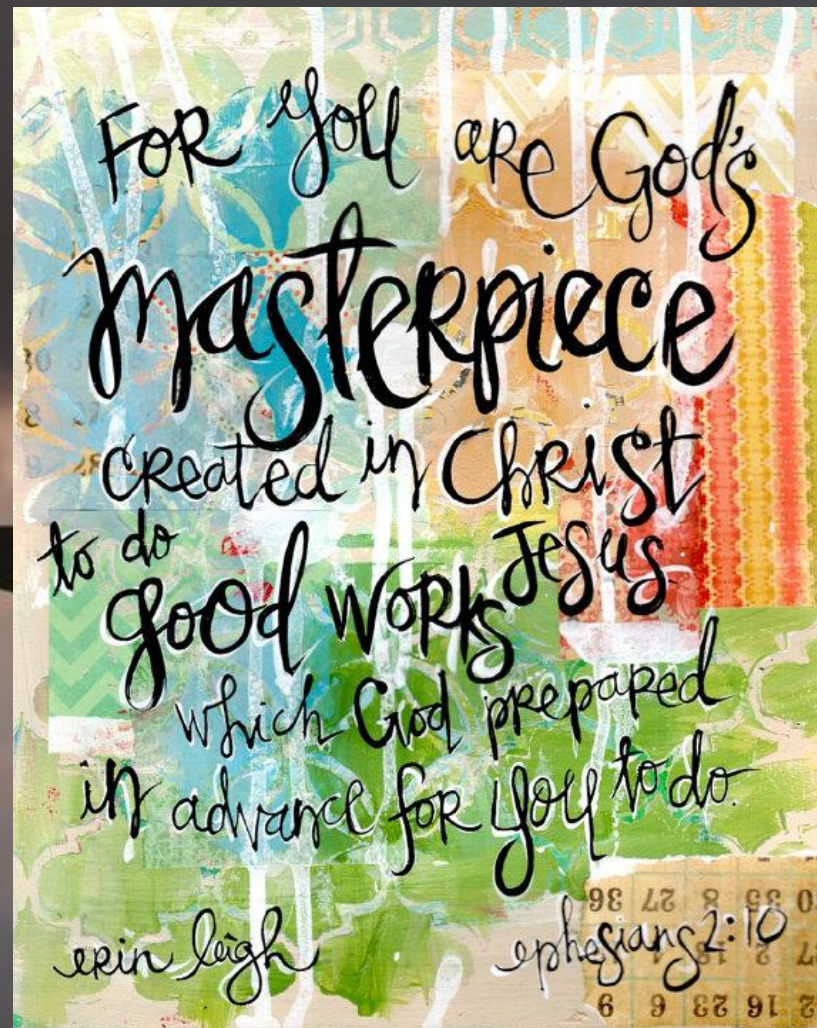 FOR you aRe God's
masteRpiece
cReated in ChRist
to do Jesus
good woRks
which God pRepaRed
in advance foR you to do.
eRin leigh
ephesians 2:10
36 27 8 35 0
9 6 23 16 2